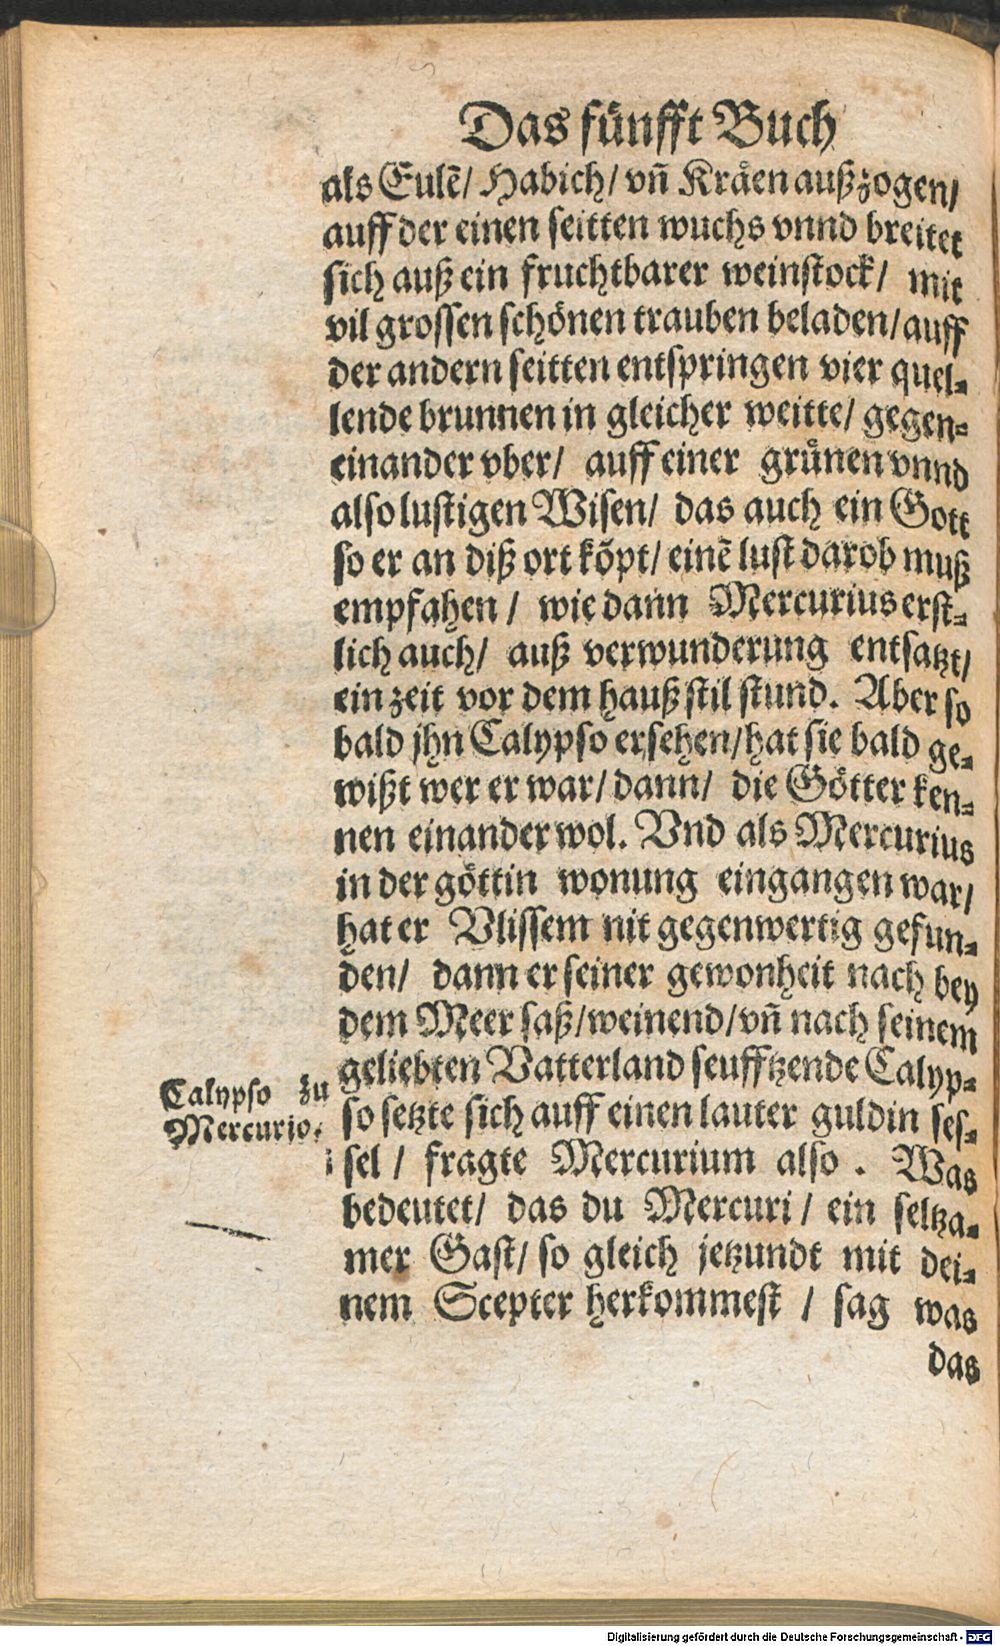 Das fünfft Buch
als Eulẽ/ Habich/ vñ Kräen außzogen/
auff der einen seitten wuchs vnnd breitet
sich auß ein fruchtbarer weinstock/ mit
vil grossen schönen trauben beladen/ auff
der andern seitten entspringen vier quel-
lende brunnen in gleicher weitte/ gegen-
einander vber/ auff einer grünen vnnd
also lustigen Wisen/ das auch ein Gott
so er an diß ort kõpt/ einẽ lust darob muß
empfahen / wie dann Mercurius erst-
lich auch/ auß verwunderung entsatzt/
ein zeit vor dem hauß stil stund. Aber so
bald jhn Calypso ersehen/ hat sie bald ge-
wißt wer er war/ dann/ die Götter ken-
nen einander wol. Vnd als Mercurius
in der göttin wonung eingangen war/
hat er Vlissem nit gegenwertig gefun-
den/ dann er seiner gewonheit nach bey
dem Meer saß/ weinend/ vñ nach seinem
geliebten Vatterland seufftzende Calyp-
so setzte sich auff einen lauter guldin ses-
sel / fragte Mercurium also . Was
bedeutet/ das du Mercuri / ein seltza-
mer Gast/ so gleich jetzundt mit dei-
nem Scepter herkommest / sag was
das
Calypso zu
Mercurio.
Digitalisierung gefördert durch die Deutsche Forschungsgemeinschaft - DFG